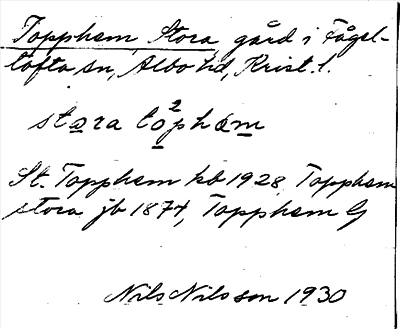 Topphem, Stora, gård i Fågel-
tofta sn, Albo hd, Krist. l.
stora to²phäm
St. Topphem kb 1928, Topphem
stora jb 1874, Topphem G
Nils Nilsson 1930